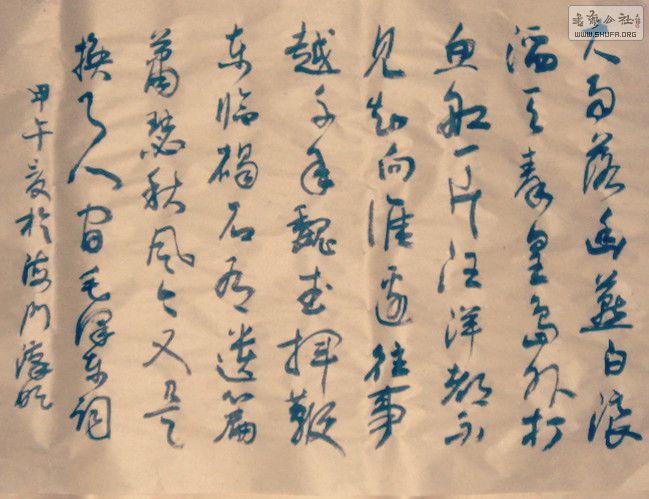 大雨落幽燕白浪
滔天秦皇岛外打
鱼船一片汪洋都不
见知向谁边往事
越千年魏武挥鞭
东临碣石有遗篇
萧瑟秋风今又是
换了人间毛泽东词
甲午夏於海门
书法公社
WWW.SHUFA.ORG